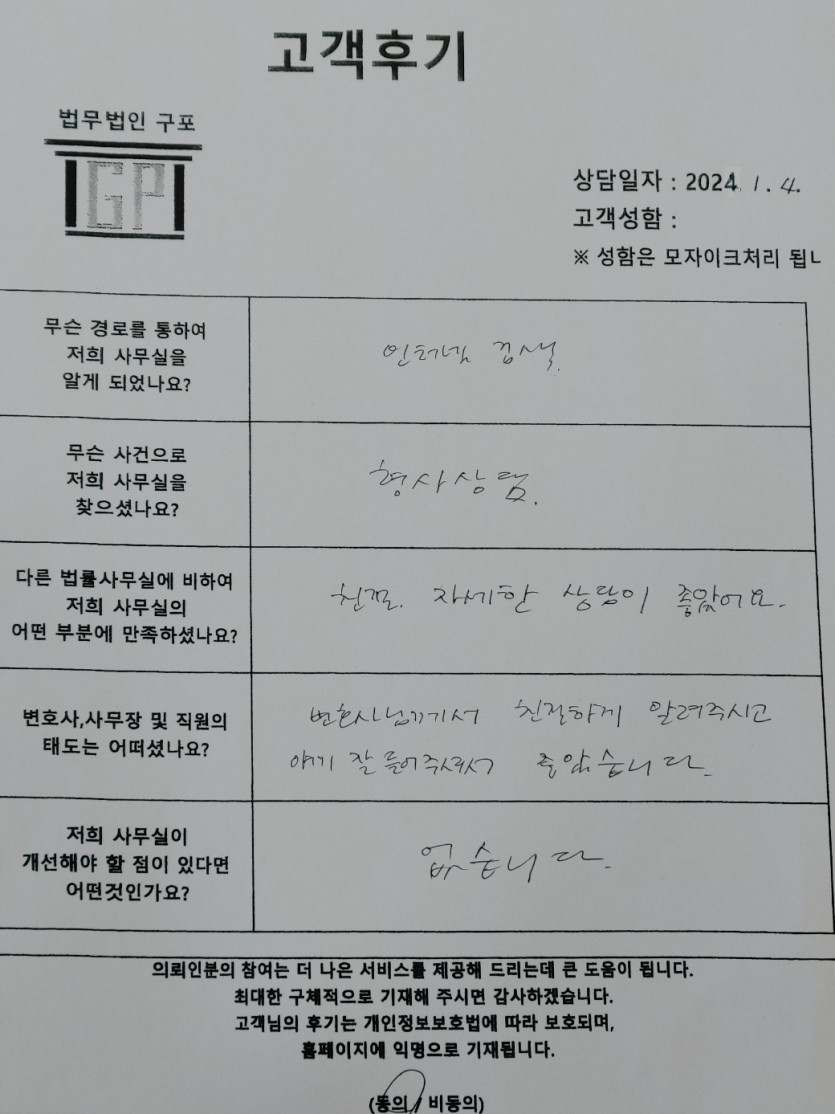 고객후기
법무법인 구포
GP
상담일자 : 2024. 1. 4.
고객성함 :
※ 성함은 모자이크처리 됩ㄴ
무슨 경로를 통하여
저희 사무실을
알게 되었나요?
인터넷 검색.
무슨 사건으로
저희 사무실을
찾으셨나요?
형사상담.
다른 법률사무실에 비하여
저희 사무실의
어떤 부분에 만족하셨나요?
친절. 자세한 상담이 좋았어요.
변호사,사무장 및 직원의
태도는 어떠셨나요?
변호사님께서 친절하게 알려주시고
얘기 잘 들어주셔서 좋았습니다.
저희 사무실이
개선해야 할 점이 있다면
어떤것인가요?
없습니다.
의뢰인분의 참여는 더 나은 서비스를 제공해 드리는데 큰 도움이 됩니다.
최대한 구체적으로 기재해 주시면 감사하겠습니다.
고객님의 후기는 개인정보보호법에 따라 보호되며,
홈페이지에 익명으로 기재됩니다.
(동의 / 비동의)